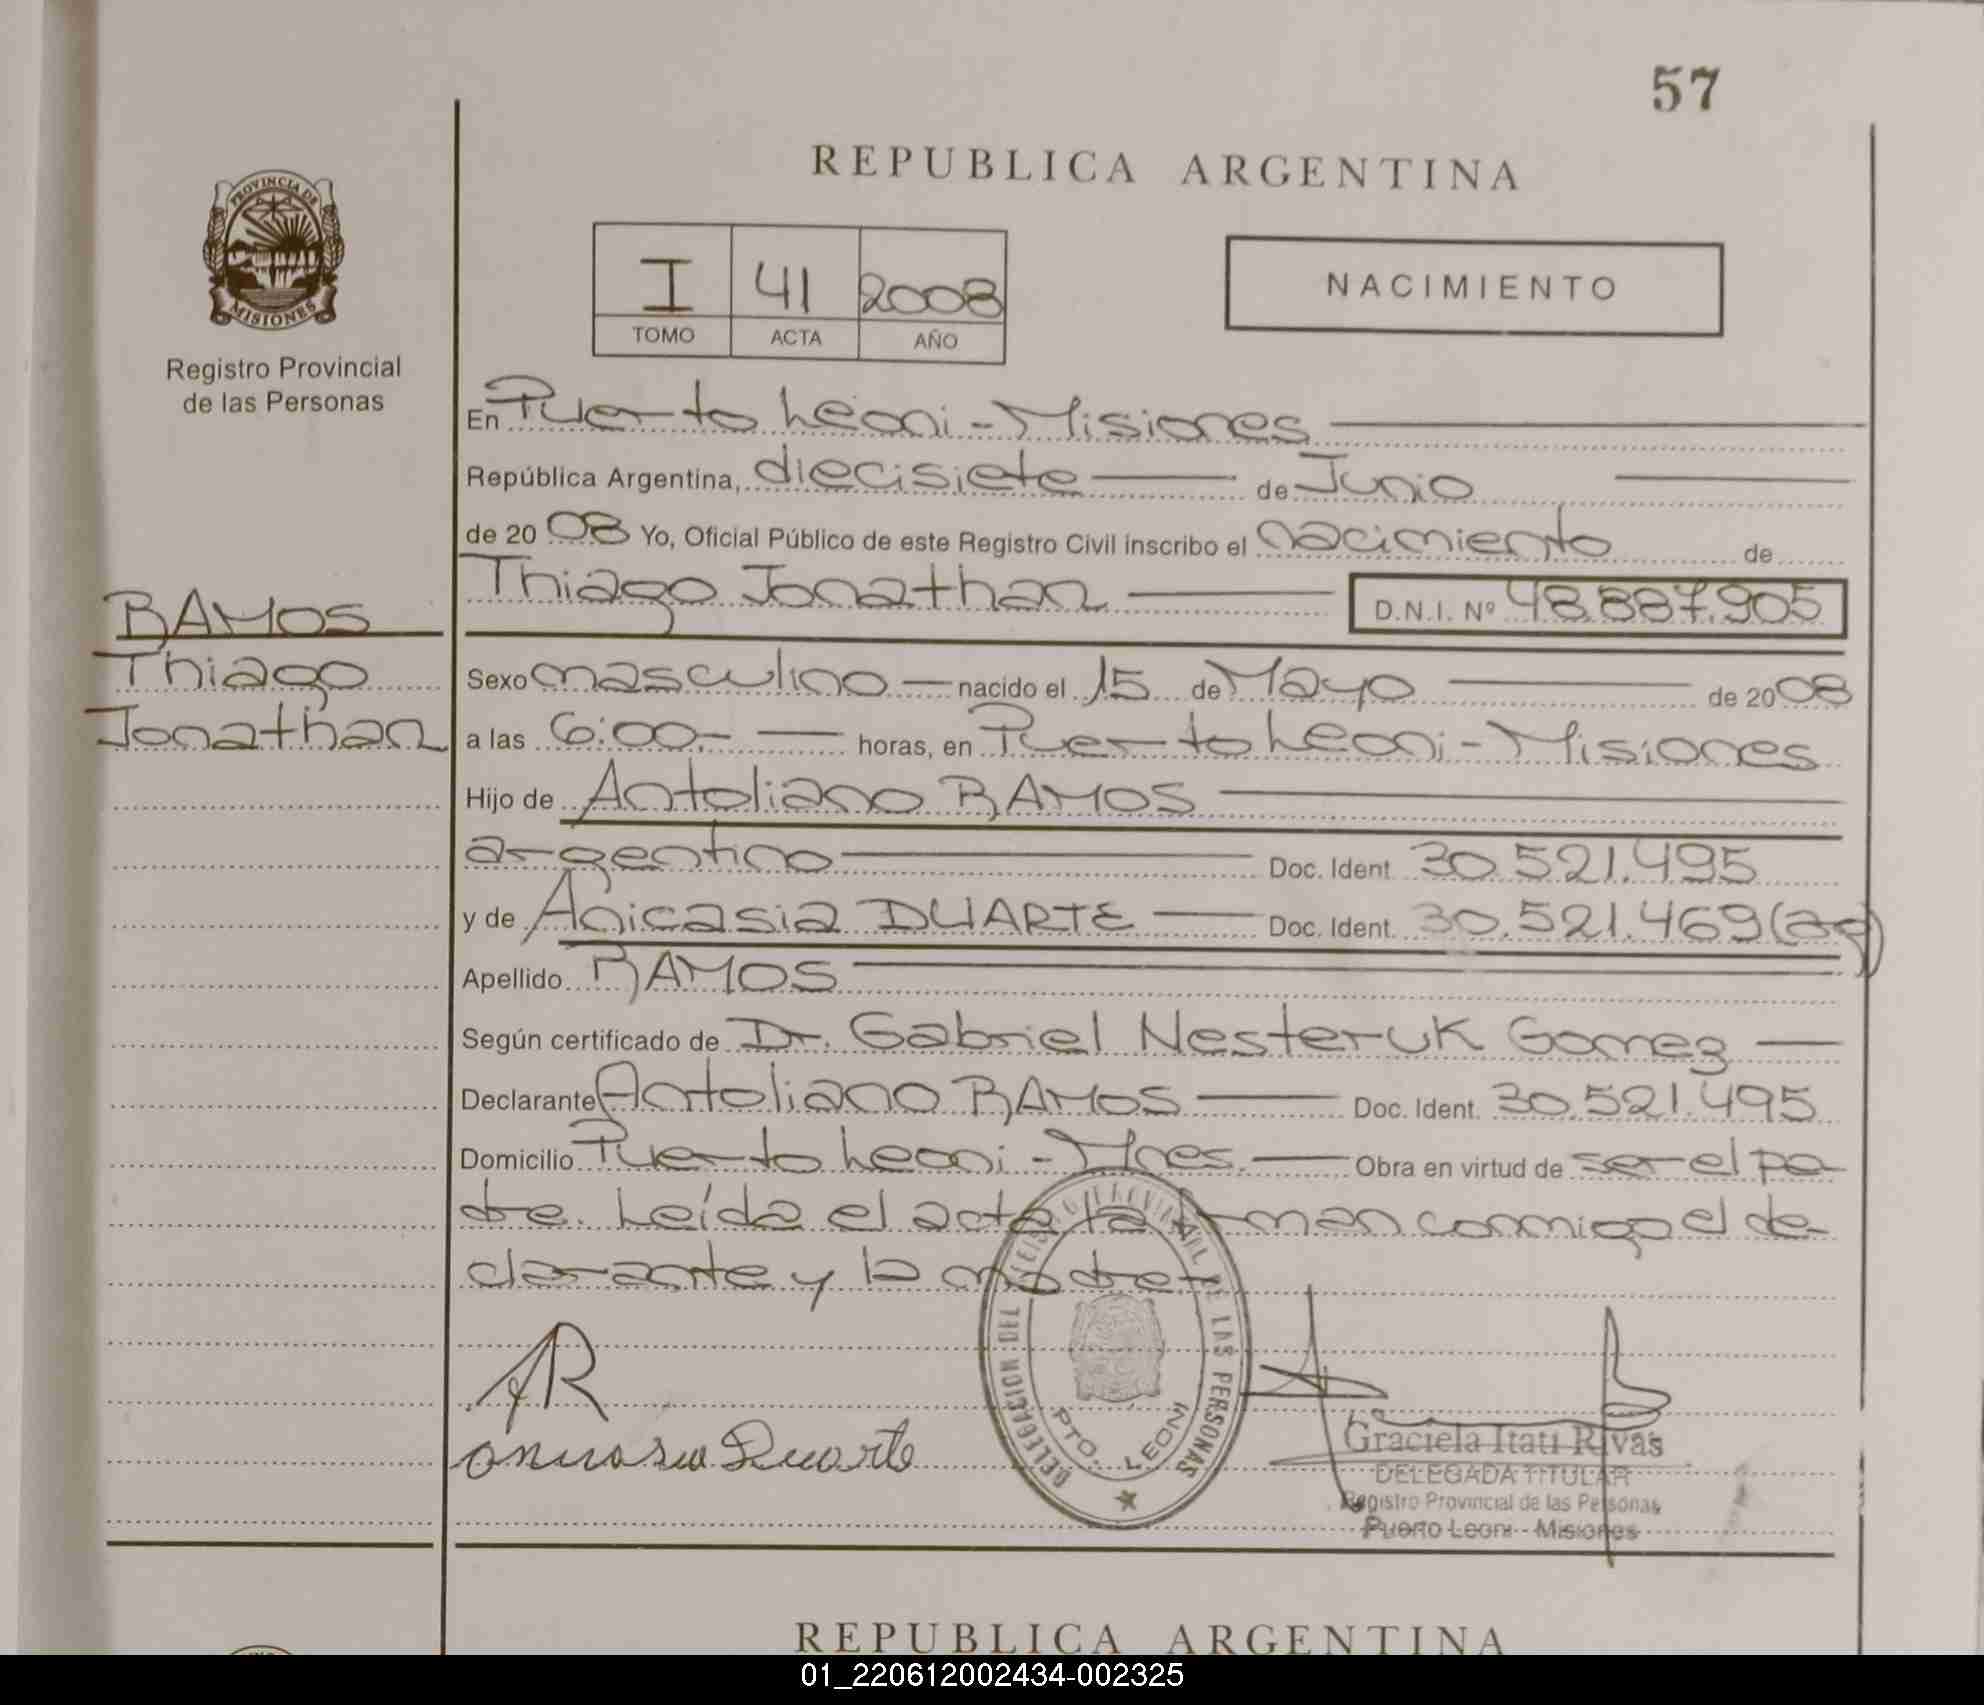 57
REPUBLICA ARGENTINA
PROVINCIA DE
MISIONES
Registro Provincial
de las Personas
I 41 2008
TOMO ACTA AÑO
NACIMIENTO
En Puerto Leoni - Misiones
República Argentina, diecisiete de Junio
de 20 08 Yo, Oficial Público de este Registro Civil inscribo el nacimiento de
Thiago Jonathan D.N.I. Nº 48.887.905
RAMOS
Thiago
Jonathan
Sexo masculino nacido el 15 de Mayo de 20 08
a las 6:00.- horas, en Puerto Leoni - Misiones
Hijo de Antoliano RAMOS
argentino Doc. Ident. 30.521.495
y de Anicasia DUARTE Doc. Ident. 30.521.469 (ag)
Apellido RAMOS
Según certificado de Dr. Gabriel Nesteruk Gomez
Declarante Antoliano RAMOS Doc. Ident. 30.521.495
Domicilio Puerto Leoni - Mnes. Obra en virtud de ser el pa-
dre. Leída el acta la firman conmigo el de-
clarante y la madre
AR
Duarte
DELEGACION DEL REGISTRO PROVINCIAL DE LAS PERSONAS
PTO. LEONI
Graciela Itati Rivas
DELEGADA TITULAR
Registro Provincial de las Personas
Puerto Leoni - Misiones
REPUBLICA ARGENTINA
01_220612002434-002325